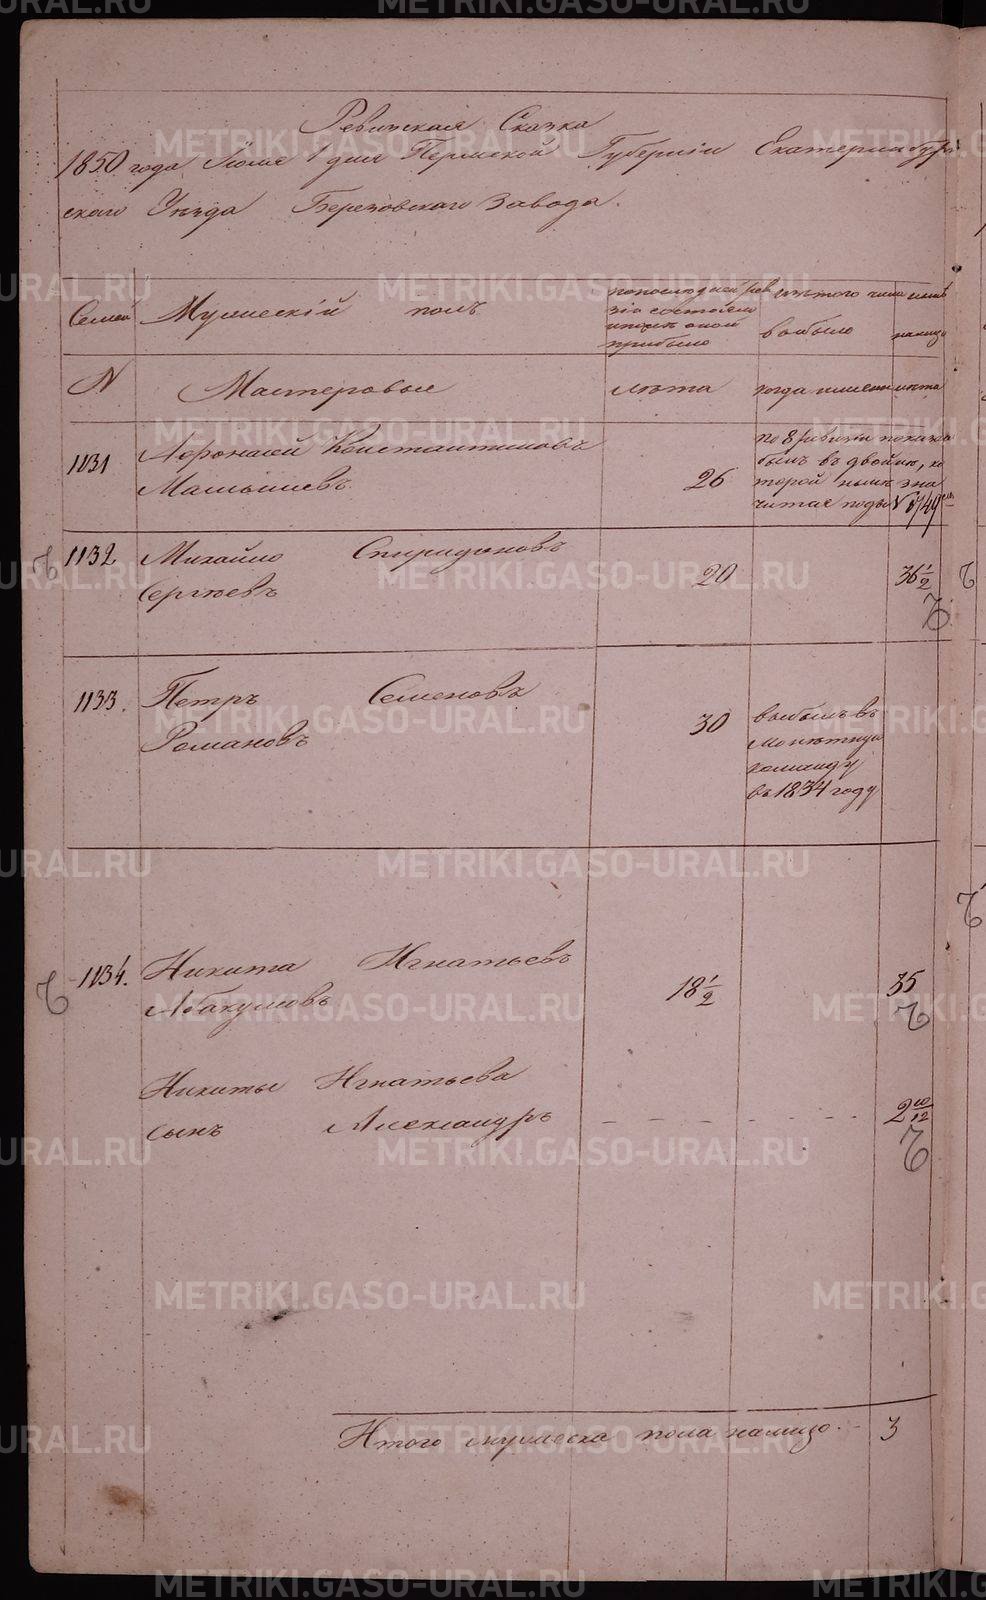 Ревизская Сказка
1850 года Июля 1 дня Пермской Губернiи Екатеринбург
скаго Уѣзда Березовскаго Завода.
Семей
Мужескiй полъ
по последней рев
зiи состояло
и послѣ оной
прибыло
изъ того числа
выбыло
налицо
N
Мастеровые
лѣта
когда именно
лѣта
1131
Афонасей Константиновъ
Малышевъ
26
по 8 ревизiи показа
былъ въ двойнѣ, ко
торой нынѣ зна
читая подъ N 1149
1132
Михайло Спиридоновъ
Сергѣевъ
20
36 1/2
1133.
Петръ Семеновъ
Романовъ
30
выбылъ въ
Монѣтную
команду
въ 1834 году
1134.
Никита Игнатьевъ
Абакумовъ
18 1/2
35
Никиты Игнатьева
сынъ Александръ
2 10/12
Итого мужеска пола налицо
3
METRIKI.GASO-URAL.RU